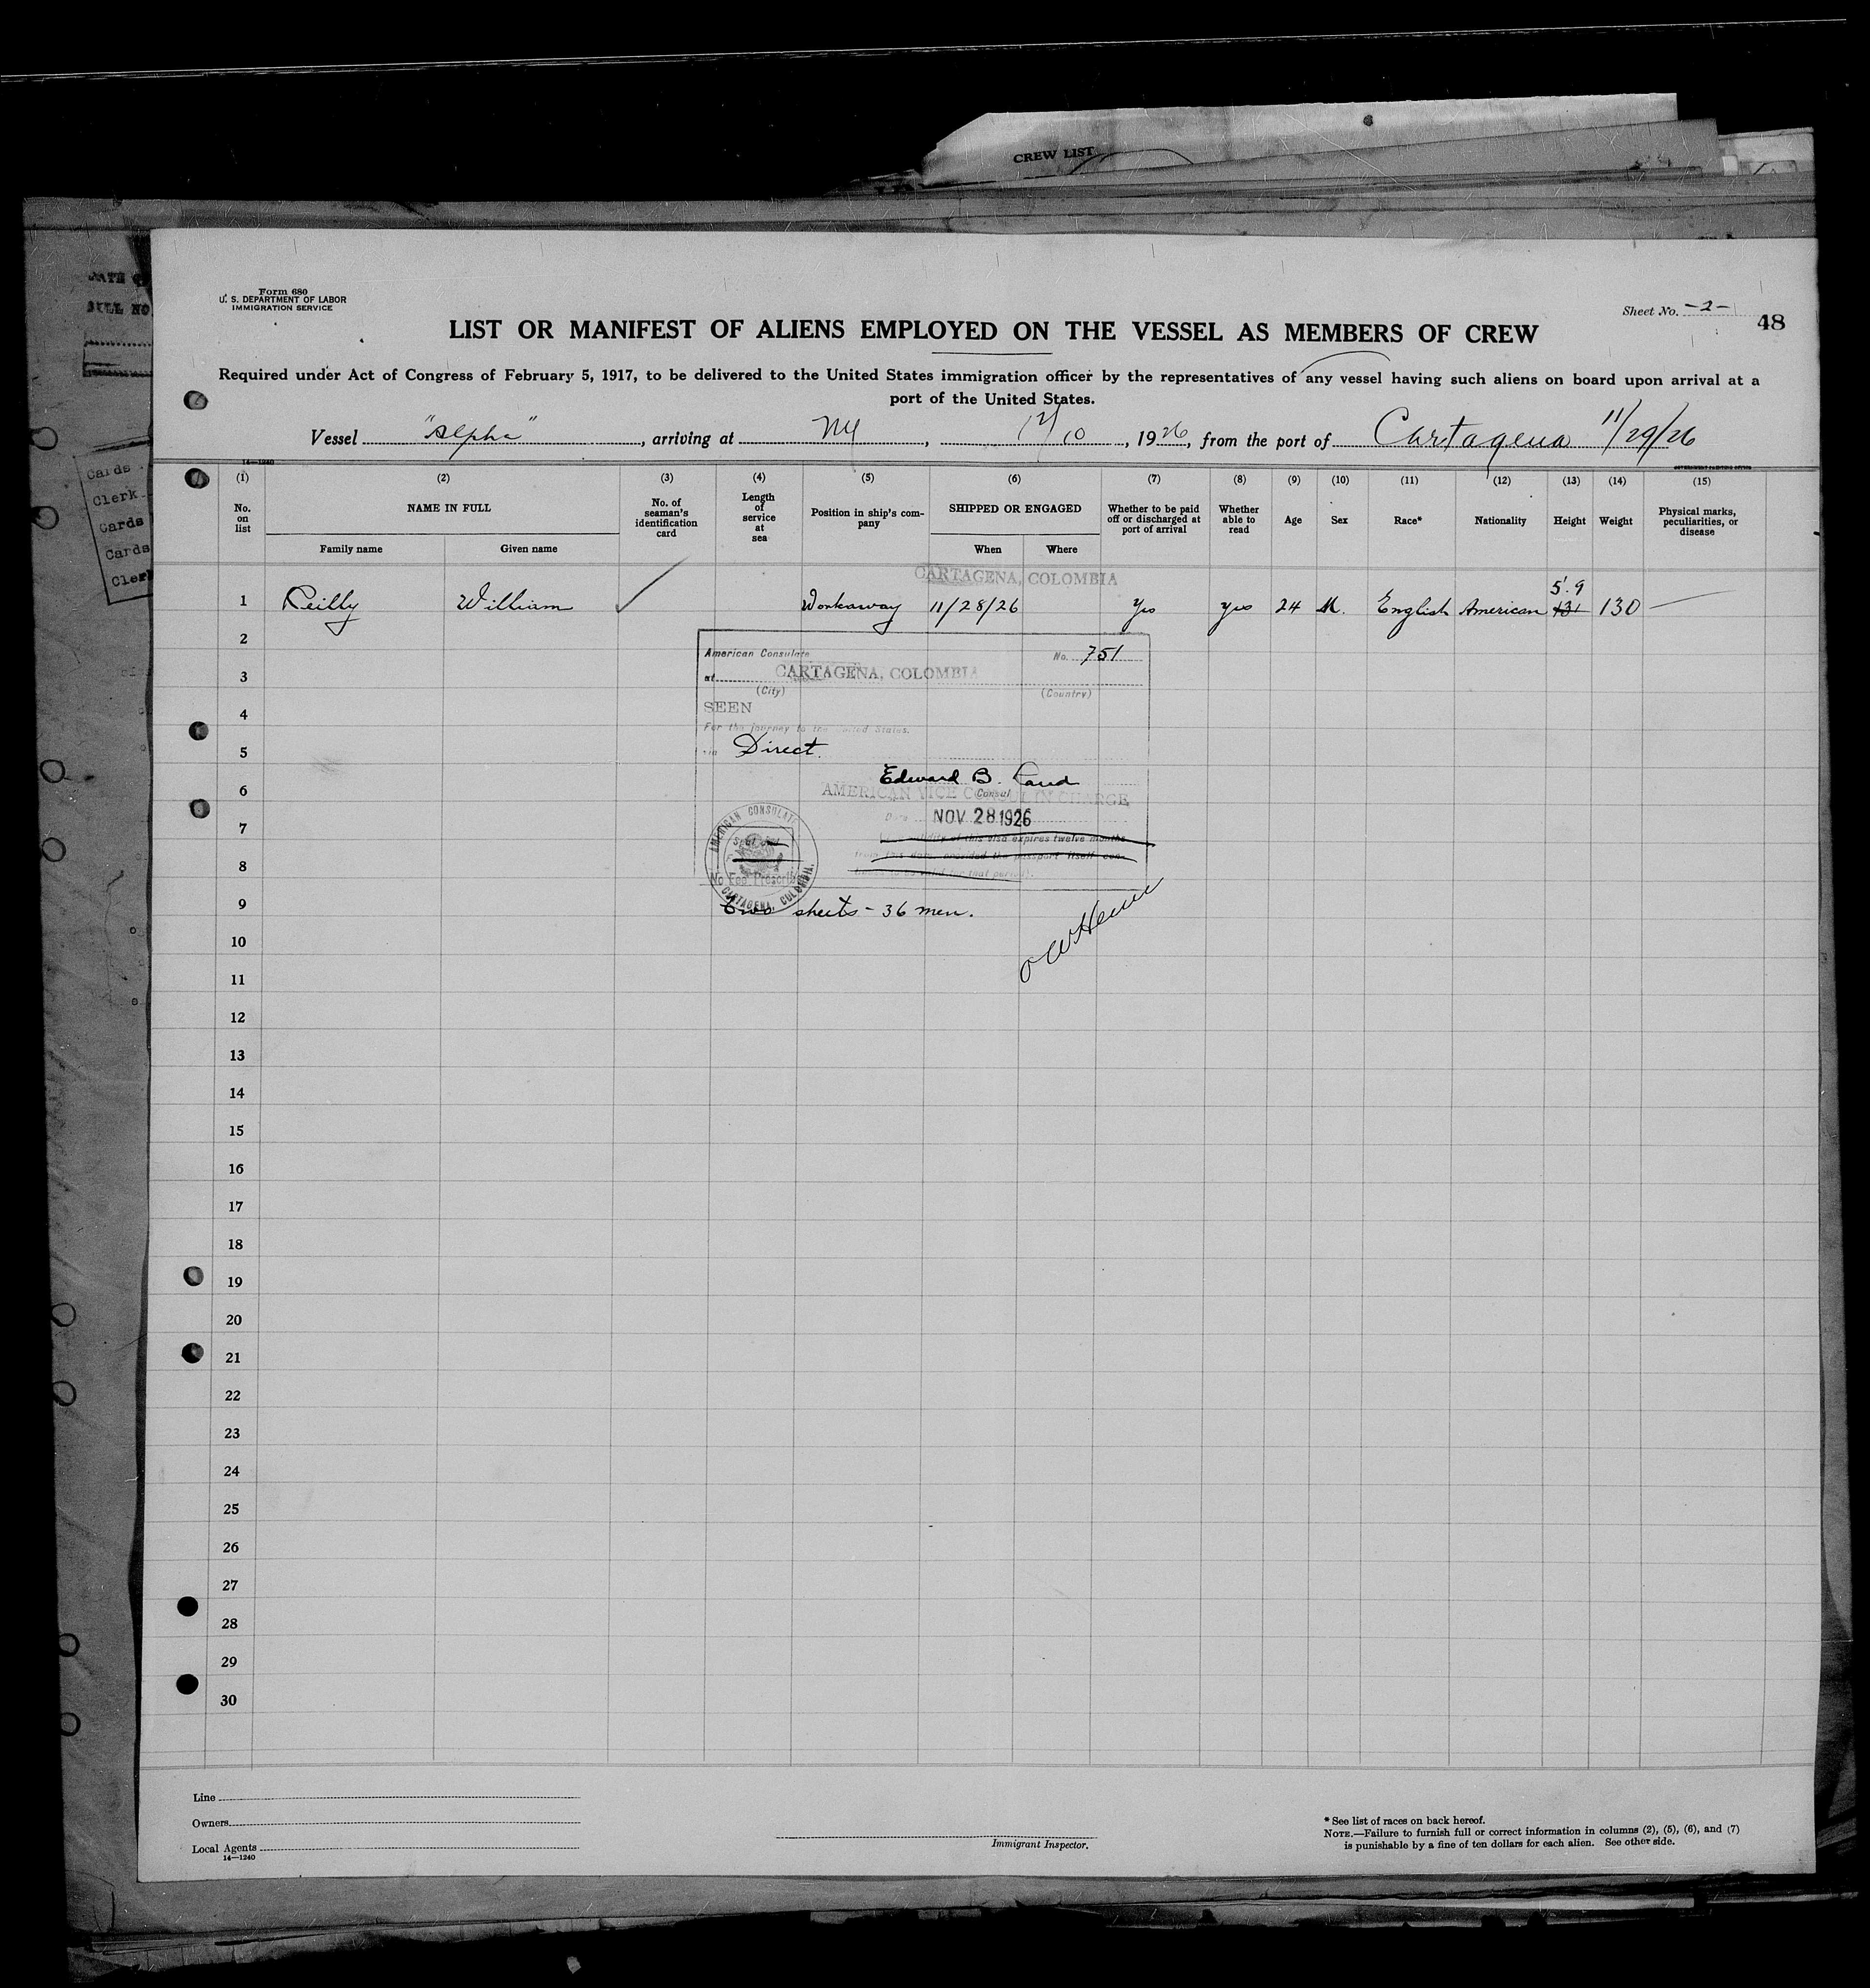 CREW LIST
Cards
Clerk
Cards
Cards
Clerk
Form 680
U. S. DEPARTMENT OF LABOR
IMMIGRATION SERVICE
Sheet No. -2-
48
LIST OR MANIFEST OF ALIENS EMPLOYED ON THE VESSEL AS MEMBERS OF CREW
Required under Act of Congress of February 5, 1917, to be delivered to the United States immigration officer by the representatives of any vessel having such aliens on board upon arrival at a
port of the United States.
Vessel "Alpha", arriving at NY, 12/10, 1926, from the port of Cartagena 11/29/26
14—1240
GOVERNMENT PRINTING OFFICE
(1) (2) (3) (4) (5) (6) (7) (8) (9) (10) (11) (12) (13) (14) (15)
No. on list
NAME IN FULL
Family name
Given name
No. of seaman's identification card
Length of service at sea
Position in ship's company
SHIPPED OR ENGAGED
When
Where
Whether to be paid off or discharged at port of arrival
Whether able to read
Age
Sex
Race*
Nationality
Height
Weight
Physical marks, peculiarities, or disease
CARTAGENA, COLOMBIA
1 Reilly William ✓ Workaway 11/28/26 Yes yes 24 M. English American 5'.9 131 130 —
2
American Consulate No. 751
3
at CARTAGENA, COLOMBIA
(City) (Country)
4
SEEN
For the journey to the United States.
5
via Direct.
Edward B. Rand
6
Consul
AMERICAN VICE CONSUL IN CHARGE
7
Date NOV 28 1926
The validity of this visa expires twelve months
8
from this date, provided the passport itself con-
tinues to be valid for that period.
AMERICAN CONSULATE
No Fee Prescribed
CARTAGENA, COLOMBIA.
9
Two sheets - 36 men.
10
11
12
13
14
15
16
17
18
19
20
21
22
23
24
25
26
27
28
29
30
Line
Owners
Local Agents
14—1240
Immigrant Inspector.
* See list of races on back hereof.
NOTE.—Failure to furnish full or correct information in columns (2), (5), (6), and (7)
is punishable by a fine of ten dollars for each alien. See other side.